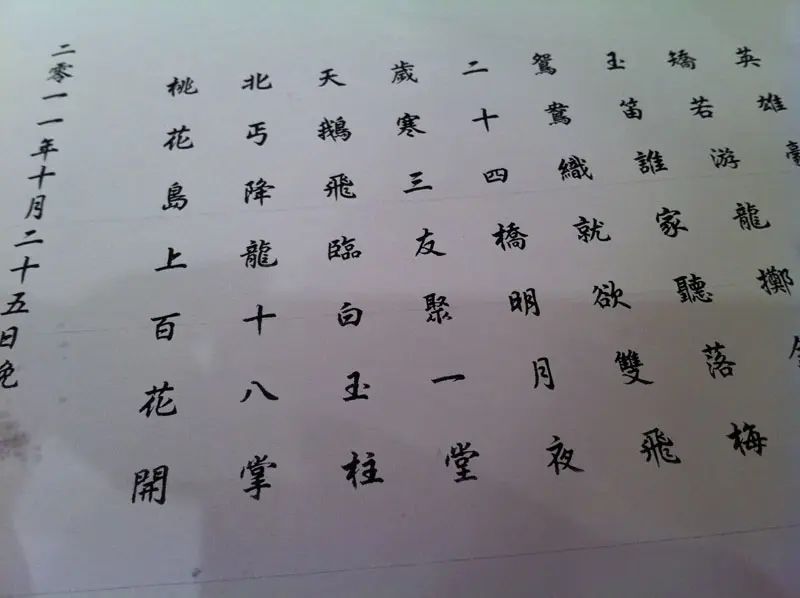 英雄
矯若游龍擲
玉笛誰家聽落梅
鴛鴦織就欲雙飛
二十四橋明月夜
歲寒三友聚一堂
天鵝飛臨白玉柱
北丐降龍十八掌
桃花島上百花開
二零一一年十月二十五日